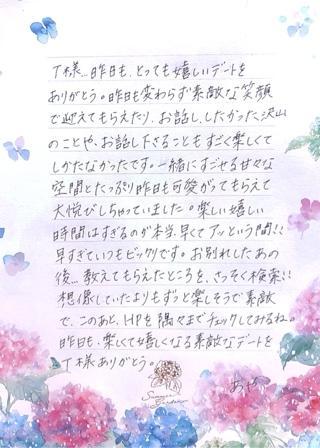 T様…昨日も、とっても嬉しいデートを
ありがとう。昨日も変わらず素敵な笑顔
で迎えてもらえたり、お話し、したかった沢山
のことや、お話し下さることもすごく楽しくて
しかたなかったです。一緒にすごせる甘々な
空間とたっぷり昨日も可愛がってもらえて
大悦びしちゃっていました。楽しい嬉しい
時間はすぎるのが本当、早くてアッという間!!
早すぎていつもビックリです。お別れしたあの
後…教えてもらえたところを、さっそく検索!!
想像していたよりもずっと楽しそうで素敵
で、このあと、HPを隅々までチェックしてみるね。
昨日も、楽しくて嬉しくなる素敵なデートを
T様ありがとう。